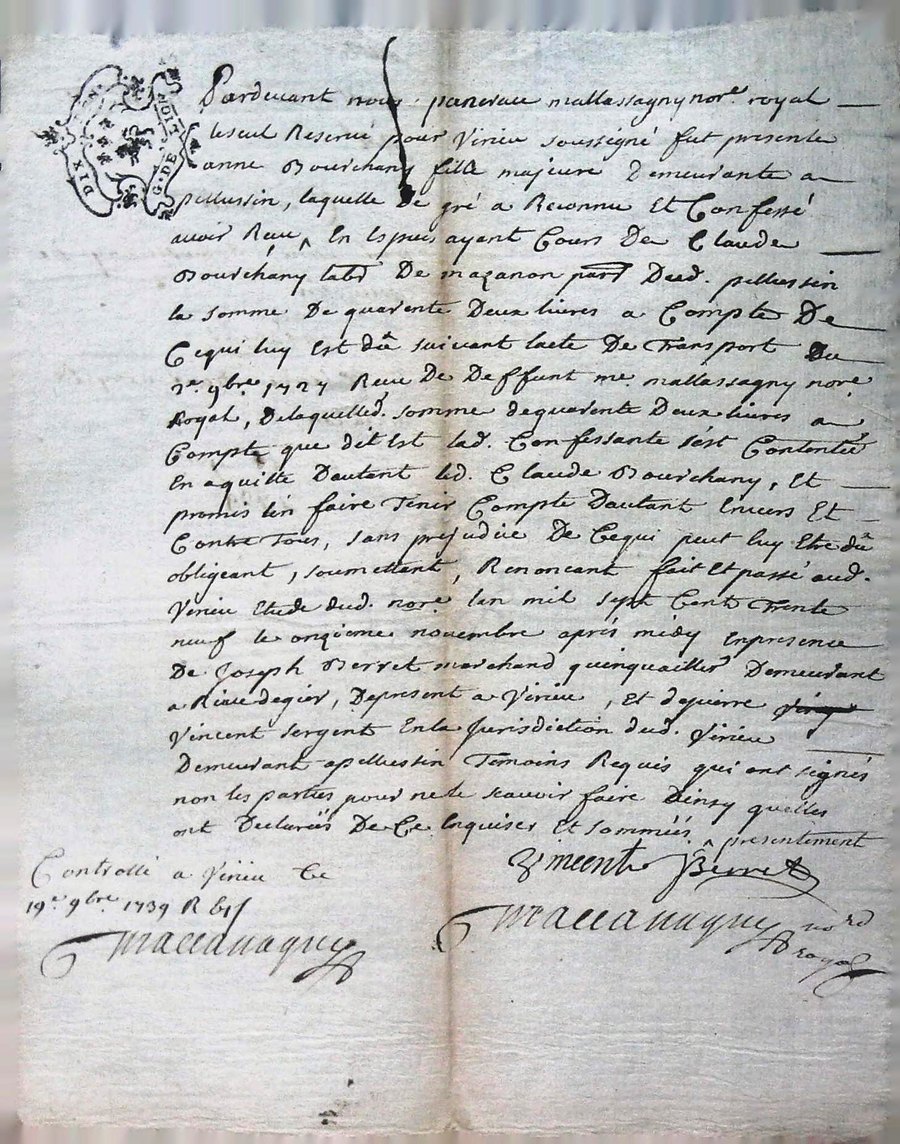 DIX DEN.
G. DE LION
Pardevant nous pancrace mallassagny nore. royal
le seul Reservé pour Virieu soussigné fut presente
anne Bourchany fille majeure Demeurante a
pellussin, laquelle De gré a Reconnu Et Confessé
avoir Reçu ^ En Espéces ayant Cours De Claude
Bourchany labr De maçanon parr. Dud. pellussin
la somme De quarente Deux livres a Compte De
Cequi luy Est dû suivant lacte De Transport Du
9bre 1727 Reçu De Deffunt me mallassagny nore
Royal, Delaquelled. somme dequarente Deux livres a
Compte que dit Est lad. Confessante s'est Contentée
En aquitte Dautant led. Claude Bourchany, Et
promis lin faire Tenir Compte Dautant Envers Et
Contre Tous, sans prejudice De Cequi peut luy Etre dû
obligeant, soumettant, Renoncant fait Et passé aud.
Virieu Etude dud. nore. lan mil sept Cent Trente
neuf le onzieme novembre aprés midy Enpresence
De Joseph Berret marchand quinquailler Demeurant
a Rivedegier, Depresent a Virieu, Et depierre
Vincent sergent Enla Jurisdiction dud. Virieu
Demeurant apellussin Temoins Requis qui ont signés
non les parties pour nele scavoir faire Dinsy quelles
ont Declarées De Ce Enquises Et sommées
^ presentement
Vincent JBerret
Controllé a Virieu Ce
19e. 9bre. 1739 R
Maccanagny
Maccanagny nore
royal